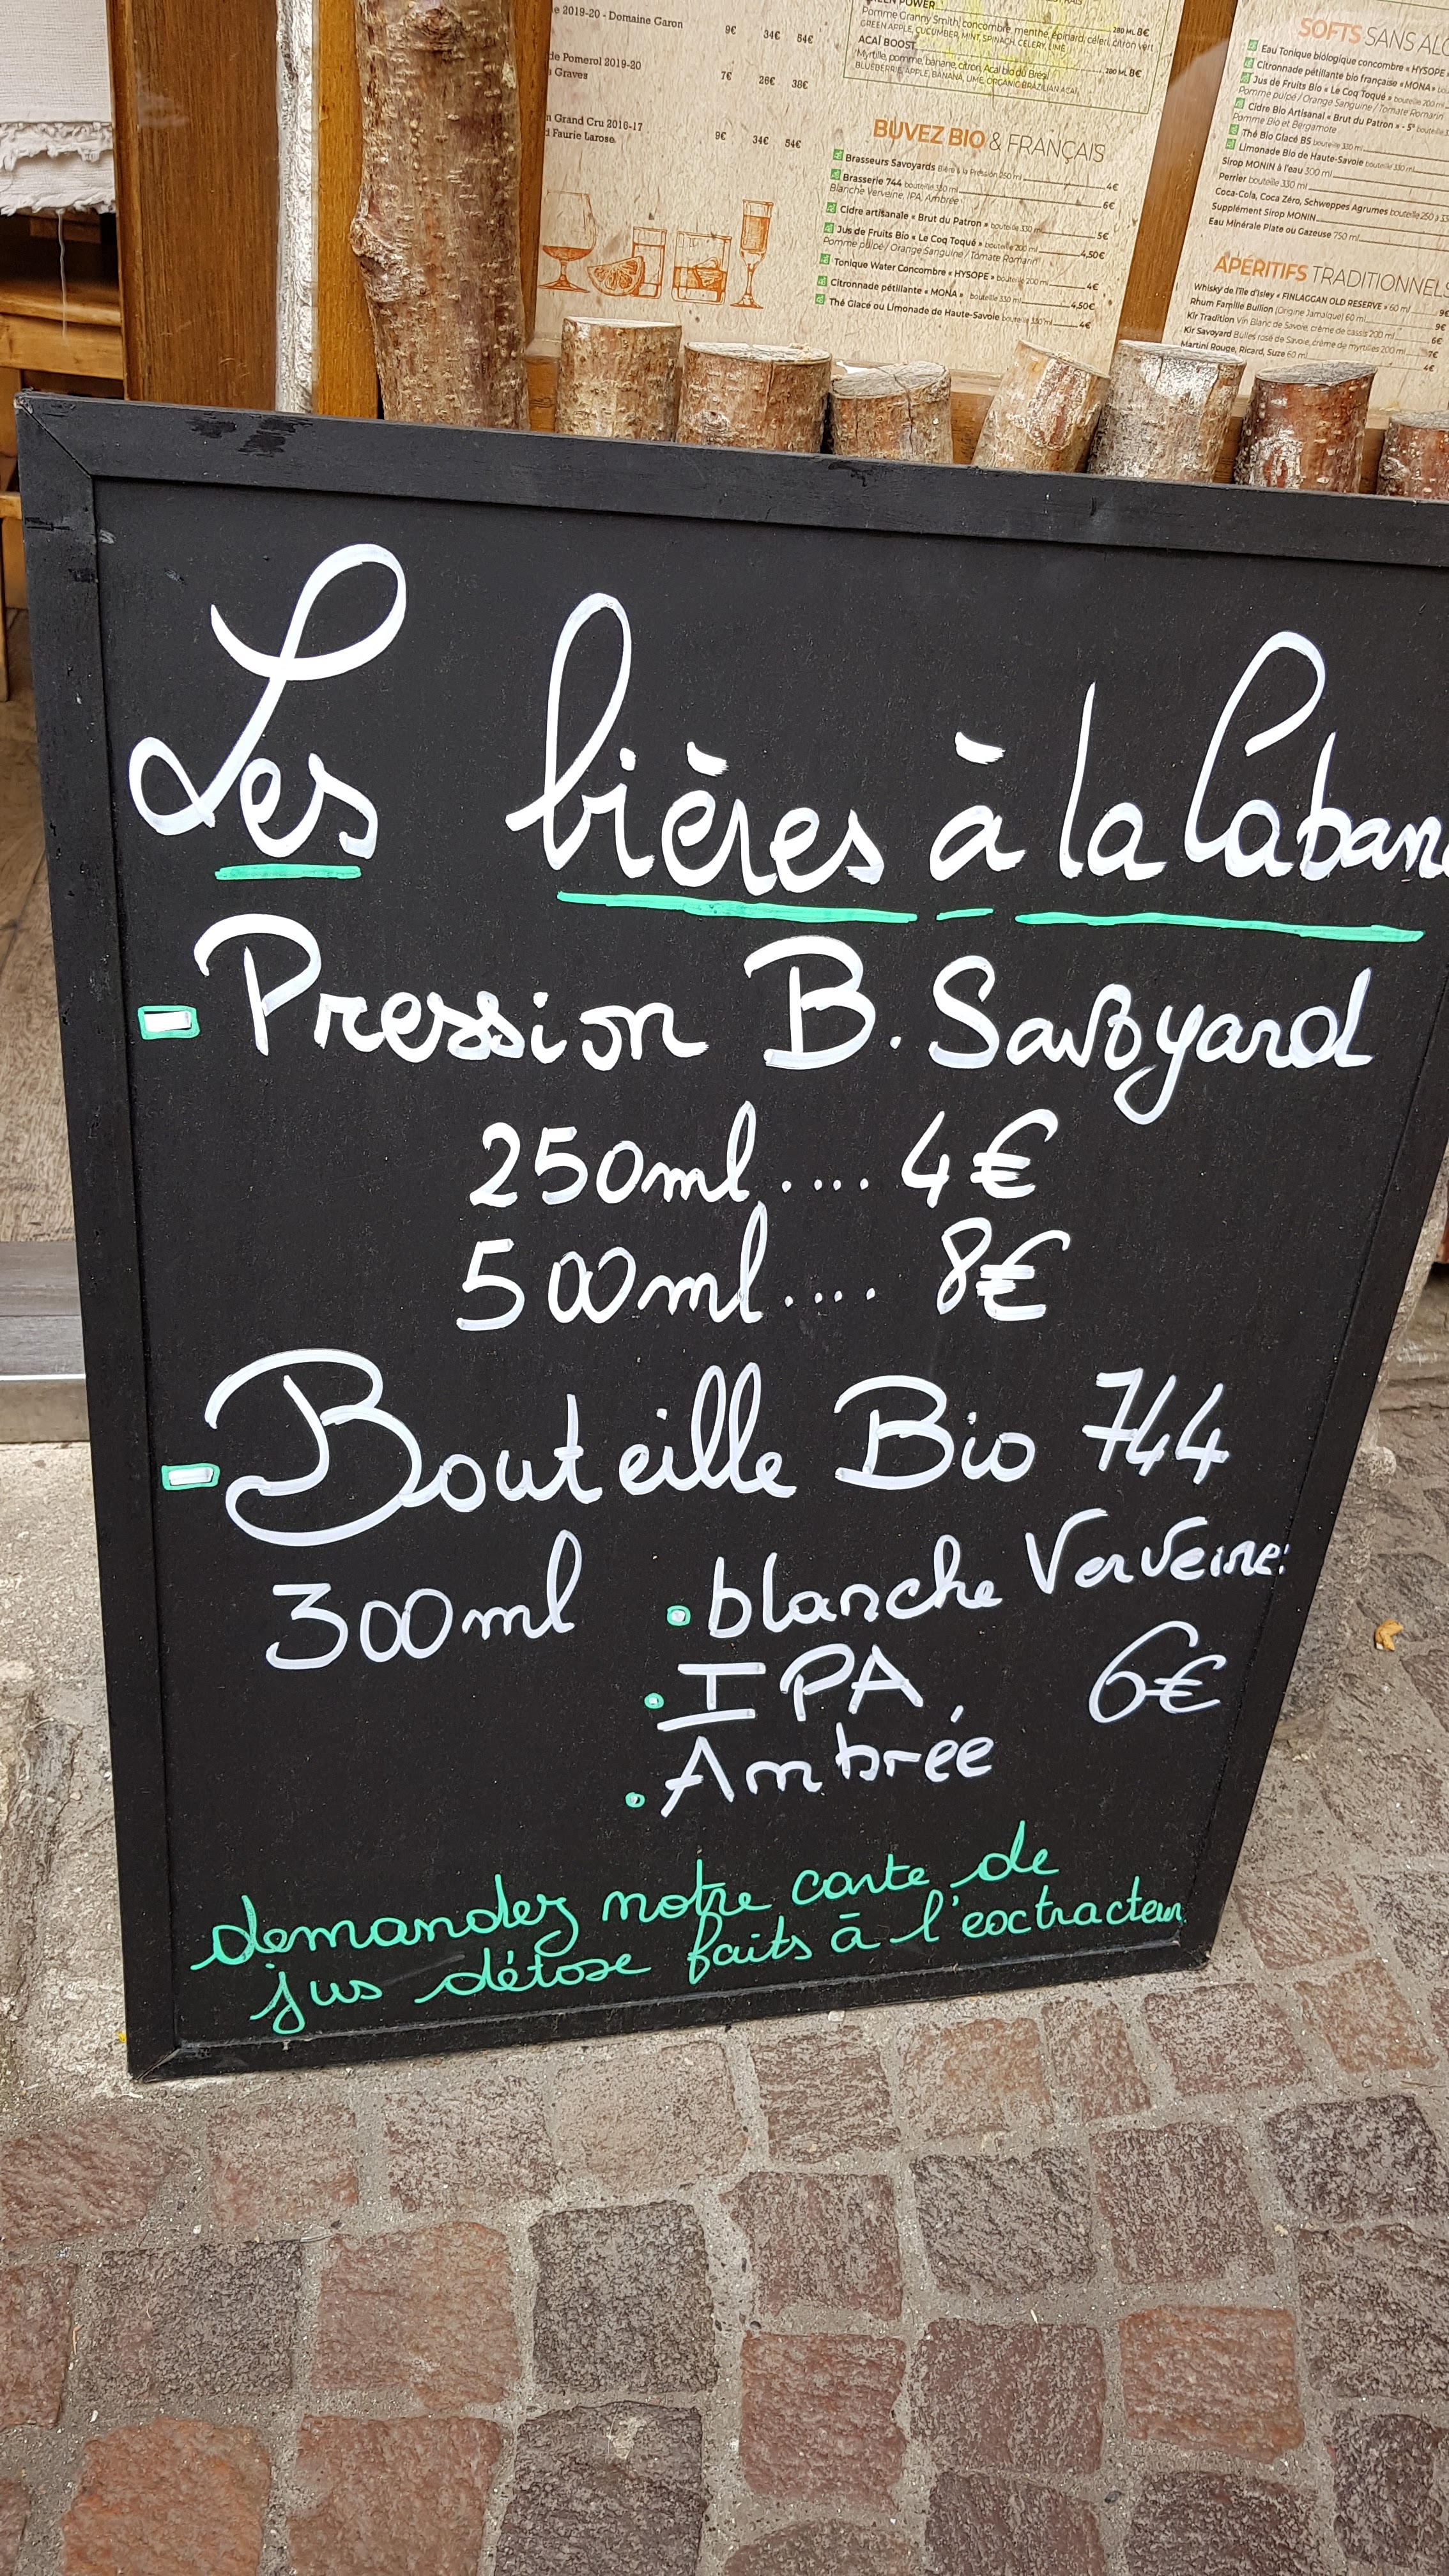 e 2019-20 - Domaine Garon
9€ 34€ 54€
de Pomerol 2019-20
Graves
7€ 26€ 38€
n Grand Cru 2016-17
Faurie Larose
9€ 34€ 54€
GREEN POWER 280 ML 8€
Pomme Granny Smith, concombre, menthe, épinard, céleri, citron vert
GREEN APPLE, CUCUMBER, MINT, SPINACH, CELERY, LIME
ACAÏ BOOST 280 ML 8€
Myrtille, pomme, banane, citron, Acaï bio du Brésil
BLUEBERRIE, APPLE, BANANA, LIME, ORGANIC BRAZILIAN ACAI
BUVEZ BIO & FRANÇAIS
Brasseurs Savoyards Bière à la Pression 250 ml 4€
Brasserie 744 bouteille 330 ml 6€
Blanche Verveine, IPA, Ambrée
Cidre artisanale « Brut du Patron » bouteille 330 ml 5€
Jus de Fruits Bio « Le Coq Toqué » bouteille 200 ml 4,50€
Pomme pulpé / Orange Sanguine / Tomate Romarin
Tonique Water Concombre « HYSOPE » bouteille 200 ml 4€
Citronnade pétillante « MONA » bouteille 330 ml 4,50€
Thé Glacé ou Limonade de Haute-Savoie bouteille 330 ml 4€
SOFTS SANS ALC
Eau Tonique biologique concombre « HYSOPE »
Citronnade pétillante bio française « MONA »
Jus de Fruits Bio « Le Coq Toqué » bouteille 200 ml
Pomme pulpé / Orange Sanguine / Tomate Romarin
Cidre Bio Artisanal « Brut du Patron » - 5° bouteille
Pomme Bio et Bergamote
Thé Bio Glacé BS bouteille 330 ml
Limonade Bio de Haute-Savoie bouteille 330 ml
Sirop MONIN à l'eau 300 ml
Perrier bouteille 330 ml
Coca-Cola, Coca Zéro, Schweppes Agrumes bouteille 250 à 3
Supplément Sirop MONIN
Eau Minérale Plate ou Gazeuse 750 ml
APÉRITIFS TRADITIONNELS
Whisky de l'île d'Isley « FINLAGGAN OLD RESERVE » 60 ml 9€
Rhum Famille Bullion (Origine Jamaïque) 60 ml 9€
Kir Tradition Vin Blanc de Savoie, crème de cassis 200 ml 6€
Kir Savoyard Bulles rosé de Savoie, crème de myrtilles 200 ml 7€
Martini Rouge, Ricard, Suze 60 ml 4€
Les bières à la Caban
- Pression B. Savoyard
250ml..... 4€
500ml.... 8€
- Bouteille Bio 744
300ml • blanche Verveine:
• IPA 6€
• Ambrée
demandez notre carte de
jus détoxe faits à l'extracteur